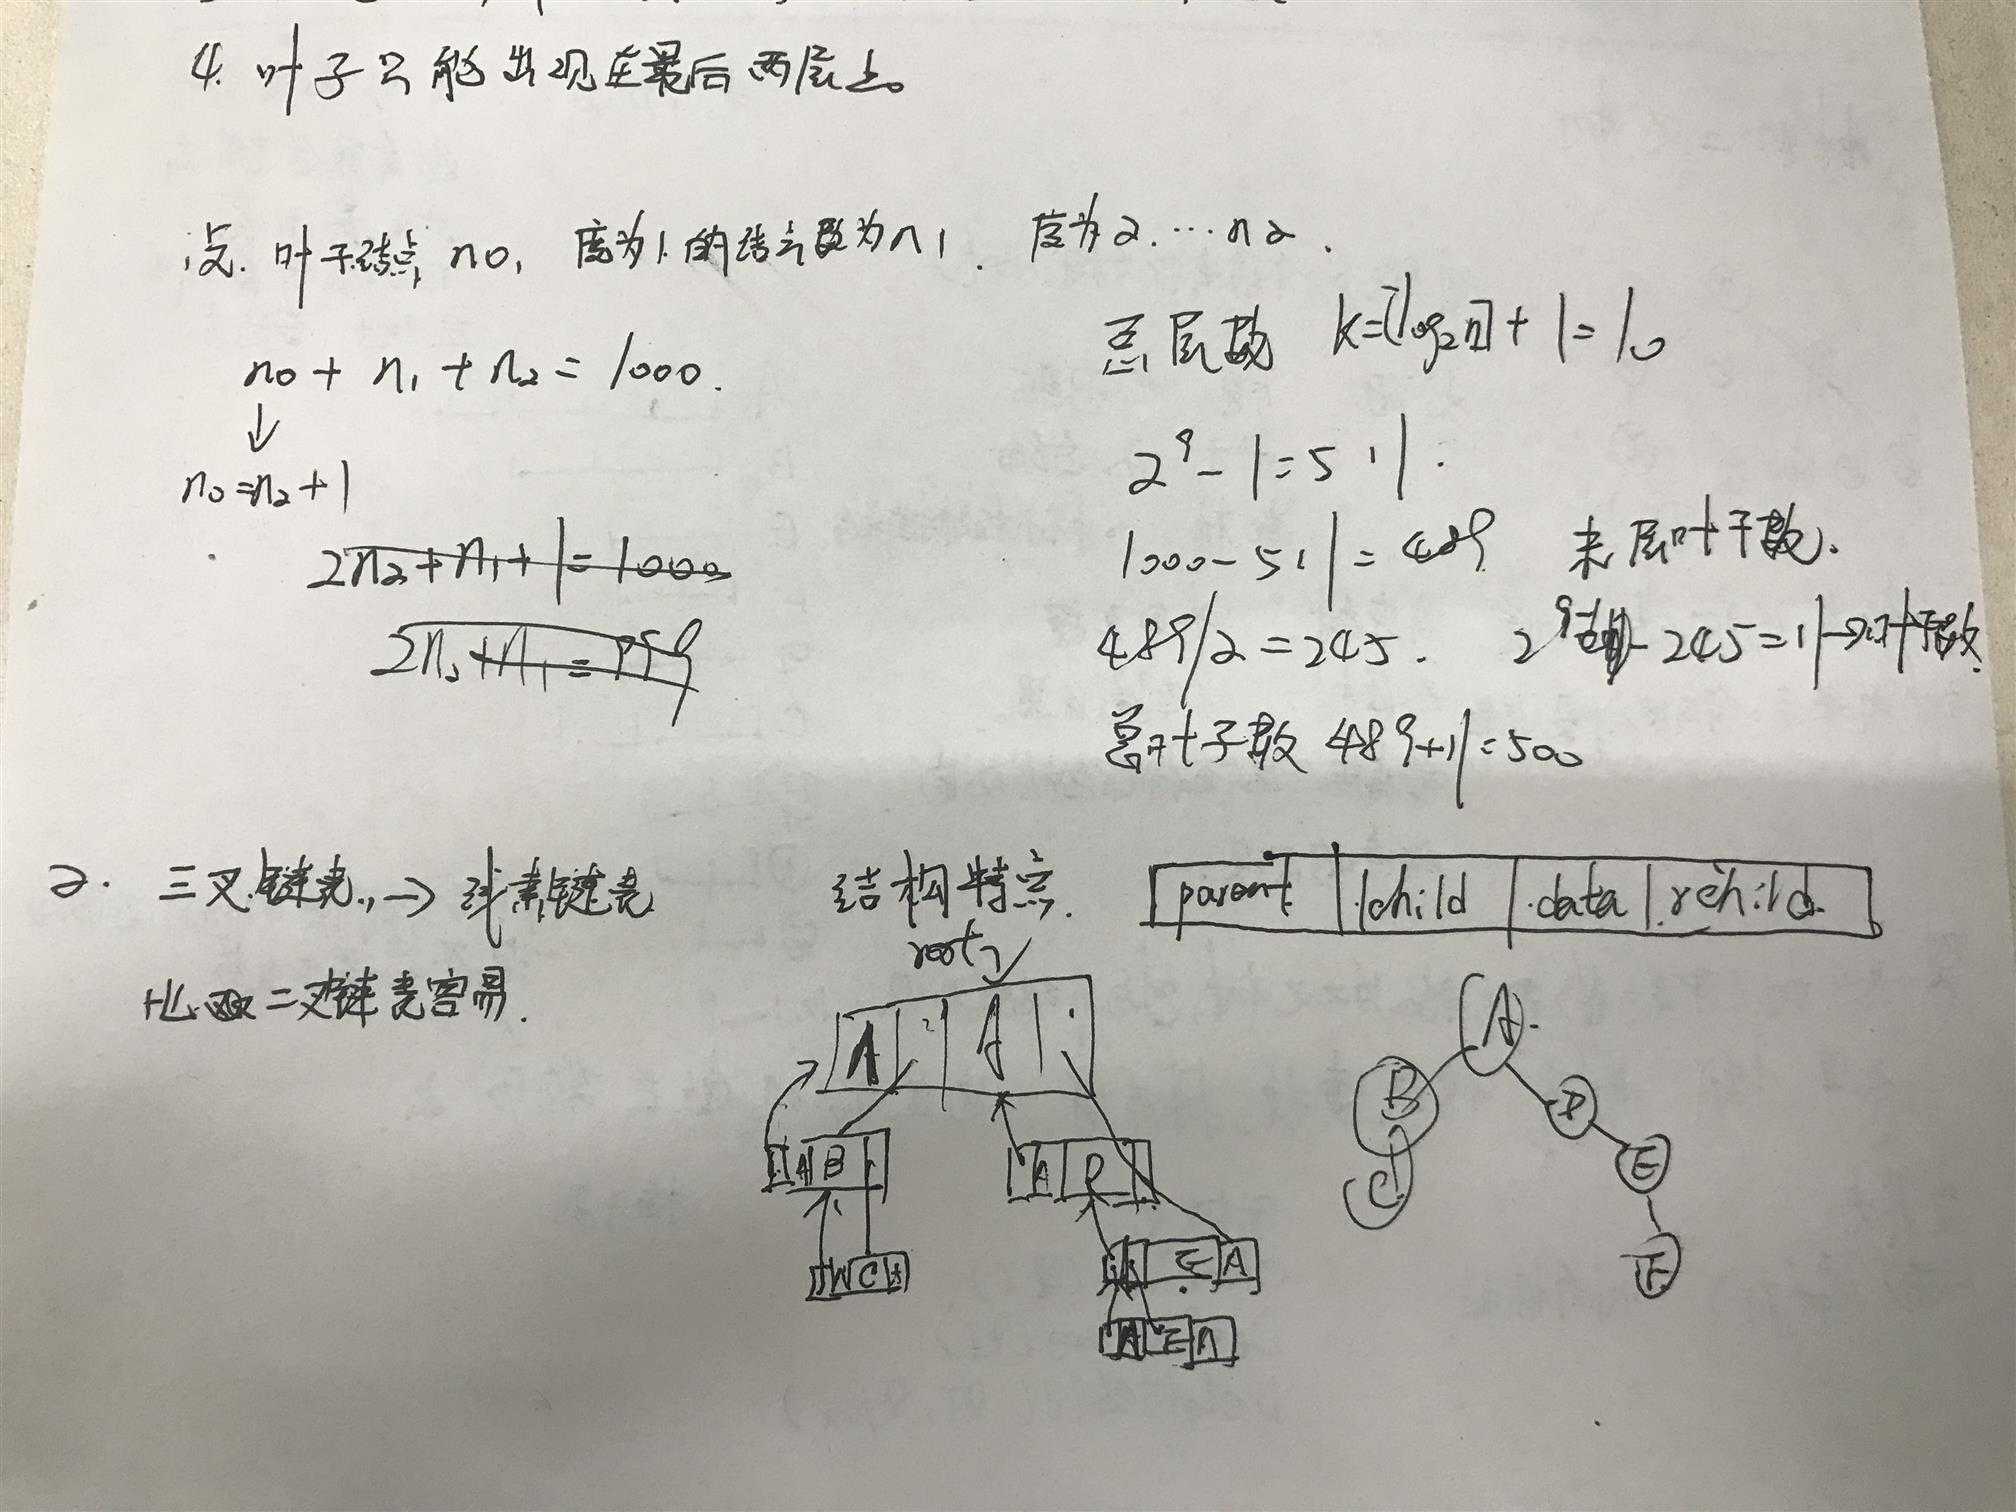 4. 叶子只能出现在最后两层上。
设. 叶子结点 n0, 度为1的结点数为n1. 度为2. … n2.
n0 + n1 + n2 = 1000.
↓
n0=n2+1
2n2+n1+1=1000
2n2+n1=999
总层数 k=[log2n]+1=10
2⁹-1=511.
1000-511=489 末层叶子数.
489/2=245. 2⁹ - 245=11→叶子数.
总叶子数 489+11=500
2. 三叉链表, → 线索链表
比 二叉链表容易.
结构特点. parent lchild data rchild
root
A A
A B
C
A D
E A
A E
A
B D
C E
F